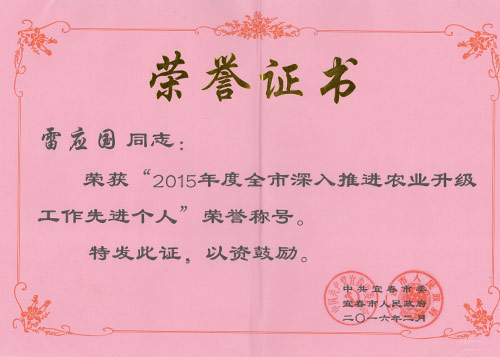 荣誉证书
雷应国 同志：
荣获“2015年度全市深入推进农业升级
工作先进个人”荣誉称号。
特发此证，以资鼓励。
中共宜春市委
宜春市人民政府
二〇一六年二月